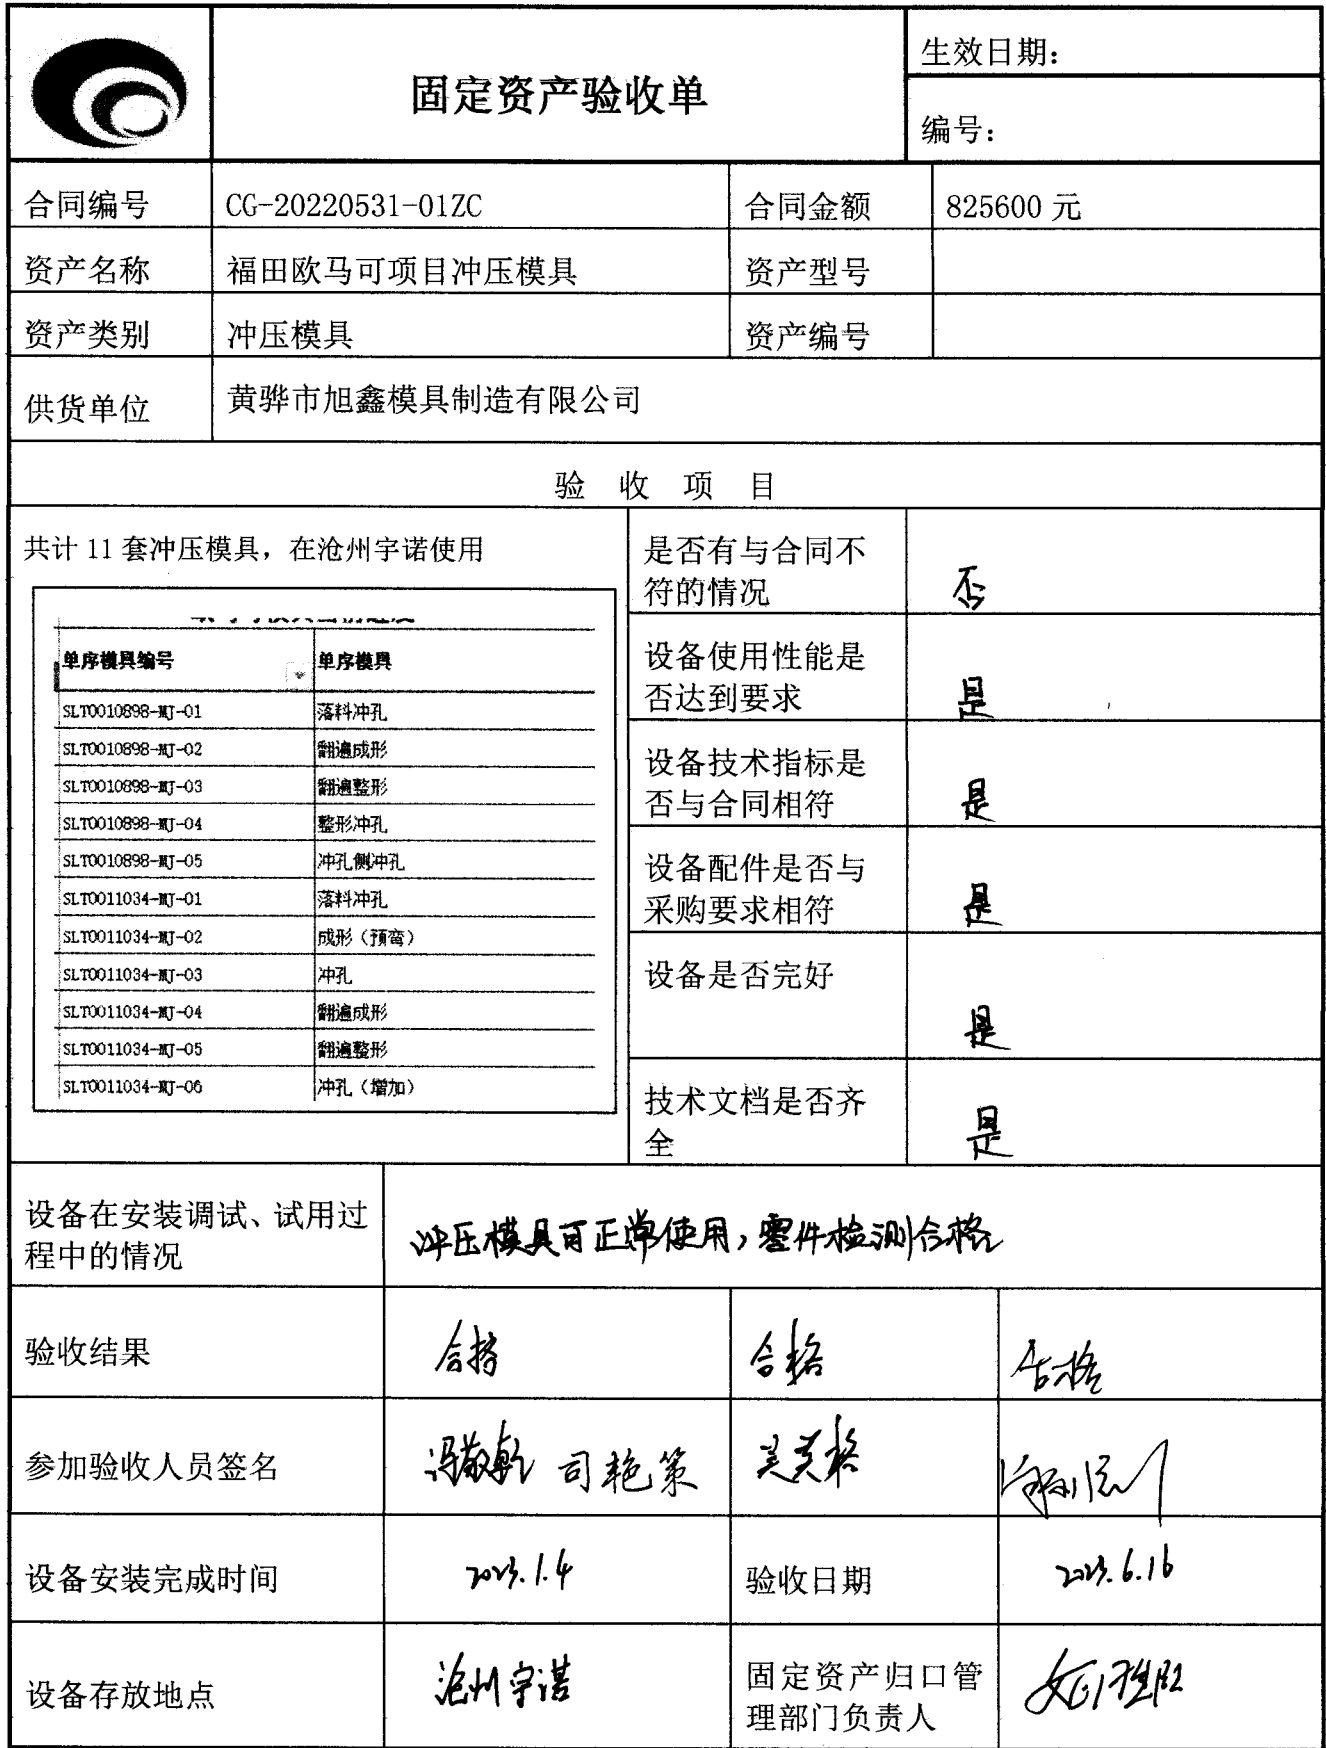 固定资产验收单
生效日期：
编号：
合同编号 CG-20220531-01ZC 合同金额 825600 元
资产名称 福田欧马可项目冲压模具 资产型号
资产类别 冲压模具 资产编号
供货单位 黄骅市旭鑫模具制造有限公司
验 收 项 目
共计 11 套冲压模具，在沧州宇诺使用
单序模具编号 单序模具
SLT0010898-MJ-01 落料冲孔
SLT0010898-MJ-02 翻遍成形
SLT0010898-MJ-03 翻遍整形
SLT0010898-MJ-04 整形冲孔
SLT0010898-MJ-05 冲孔侧冲孔
SLT0011034-MJ-01 落料冲孔
SLT0011034-MJ-02 成形（预弯）
SLT0011034-MJ-03 冲孔
SLT0011034-MJ-04 翻遍成形
SLT0011034-MJ-05 翻遍整形
SLT0011034-MJ-06 冲孔（增加）
是否有与合同不
符的情况 否
设备使用性能是
否达到要求 是
设备技术指标是
否与合同相符 是
设备配件是否与
采购要求相符 是
设备是否完好 是
技术文档是否齐
全 是
设备在安装调试、试用过
程中的情况 冲压模具可正常使用，零件检测合格
验收结果 合格 合格 合格
参加验收人员签名 冯敬乾 司艳策
设备安装完成时间 2023.1.4 验收日期 2023.6.16
设备存放地点 沧州宇诺 固定资产归口管
理部门负责人